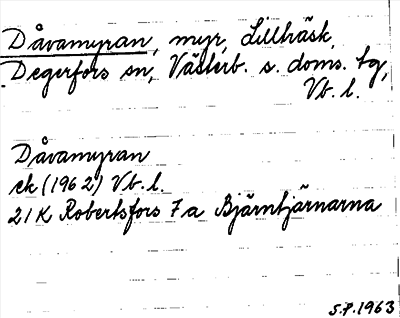 Dåvamyran, myr, Lillträsk,
Degerfors sn, Västerb. s. doms. tg,
Vb. l.
Dåvamyran
ek (1962) Vb. l.
21K Robertsfors 7a Bjärntjärnarna
S.P. 1963